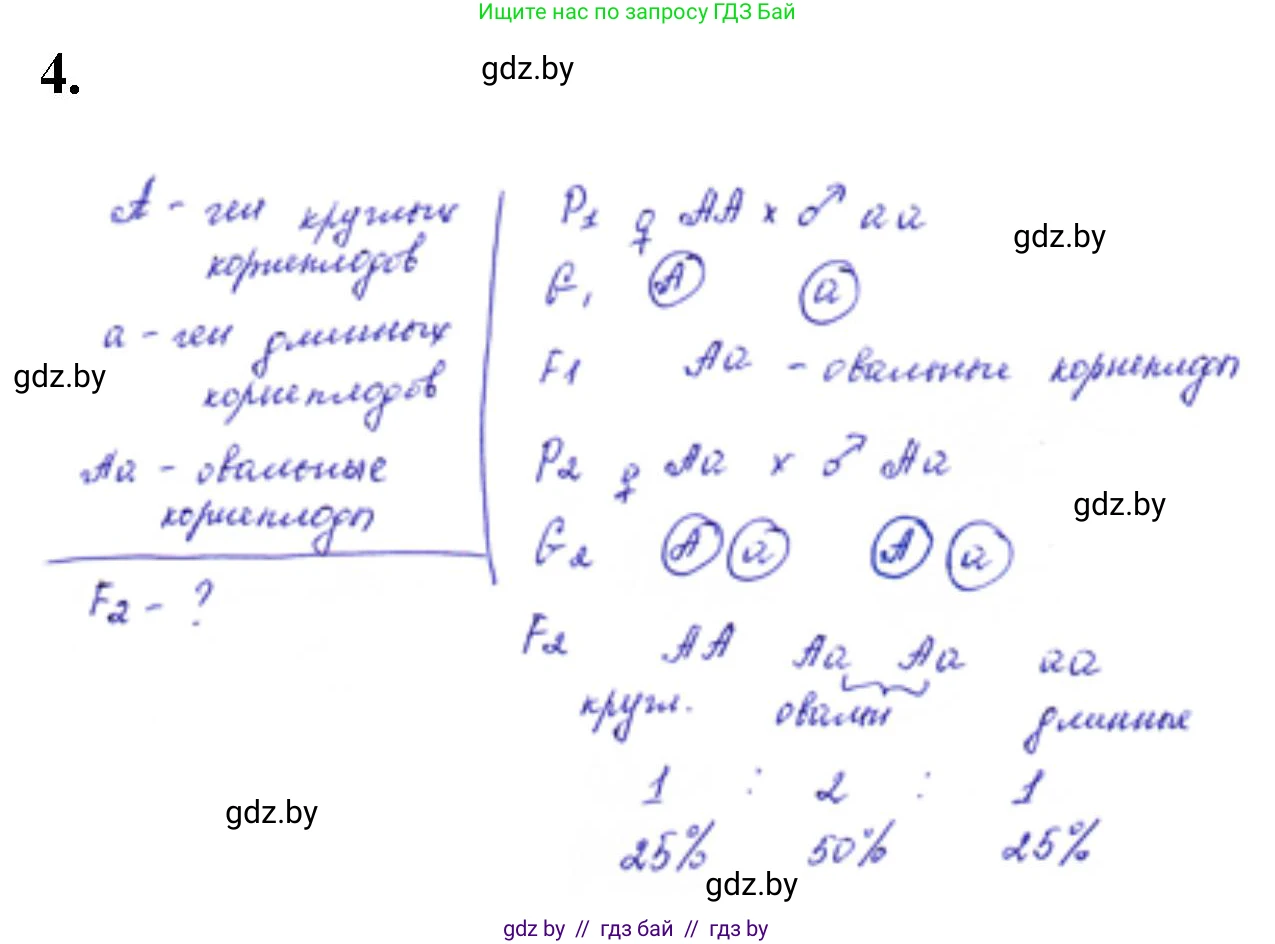 Ищите нас по запросу ГДЗ Бай
4.
gdz.by
A - ген круглых
корнеплодов
a - ген длинных
корнеплодов
Aa - овальные
корнеплоды
F2 - ?
gdz.by
P1 ♀ AA x ♂ aa
gdz.by
G1 A a
F1 Aa - овальные корнеплоды
P2 ♀ Aa x ♂ Aa
gdz.by
G2 A a A a
F2 AA Aa Aa aa
кругл. овальн длинные
1 : 2 : 1
gdz.by
25% 50% 25%
gdz.by
gdz by // гдз бай // гдз by